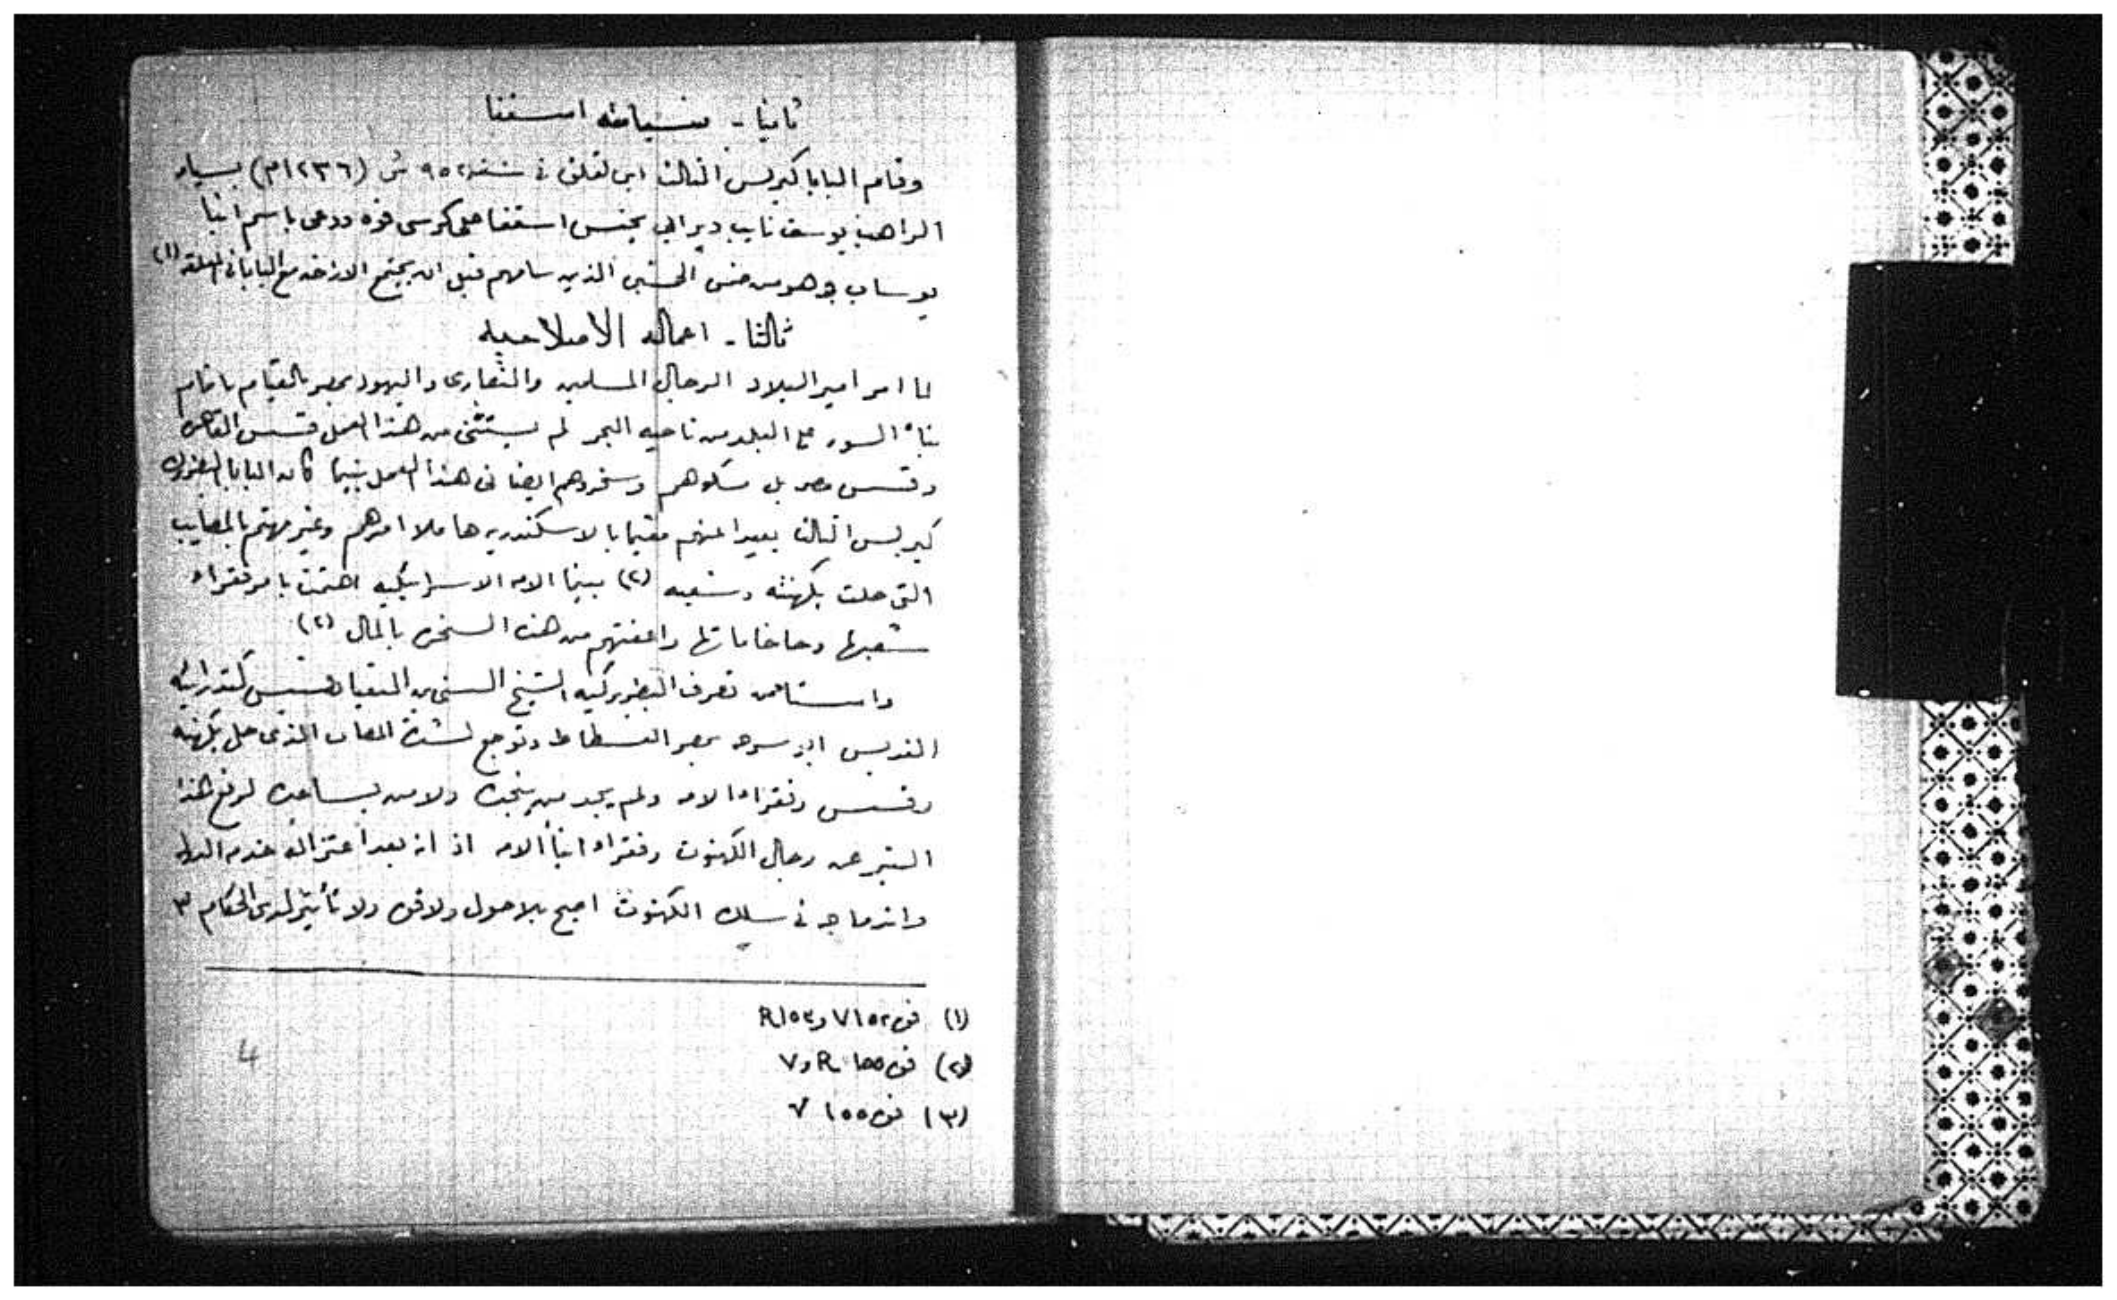 ثانيا - سيامته اسقفا
وقام البابا كيرلس الثالث ابن لقلق في سنة ٩٥٢ ش (١٢٣٦م) بسيامة
الراهب يوسف نايب دير ابي يحنس اسقفا على كرسي فوه ودعى باسم انبا
يوساب وهو من ضمن الذين سامهم قبل ان يجتمع الاراخنه مع البابا في المعلقة (١)
ثالثا - اعماله الاصلاحيه
لما امر امير البلاد الرجال المسلمين والنصارى واليهود بمصر بالقيام باتمام
بناء السور على البلد من ناحيه البحر لم يستثنى من هذا العمل قسس القاهرة
وقسس مصر بل مسكوهم وسخروهم ايضا في هذا العمل بينما كان البابا البطريرك
كيرلس الثالث بعيدا عنهم مقيما بالاسكندريه هاملا امرهم وغير مهتم بالمصايب
التى حلت بكهنته وشعبه (٢) بينما الامه الاسرائيليه اهتمت بامر فقراء
شعبها وحاخاماتها واعفتهم من هذه السخره بالمال (٢)
واستاء من تصرف البطريركيه الشيخ السنى بن قسيس كتدرائيه
القديس ابو سرجه بمصر الفسطاط وتوجع لشدة المصاب الذى حل بكهنه
وقسس وفقراء الامه ولم يجد من ينجده ولا من يساعده لرفع هذا
النير عن رجال الكهنوت وفقراء ابناء الامه اذ انه بعد اعتزاله خدمه الدوله
واندماجه في سلك الكهنوت اصبح بلا حول ولا قوه ولا تأثير لدى الحكام ٣
(١) ق ١٥٢ V و ١٥٣ R
(٢) ق ١٥٥ R و V
(٣) ق ١٥٥ V
4